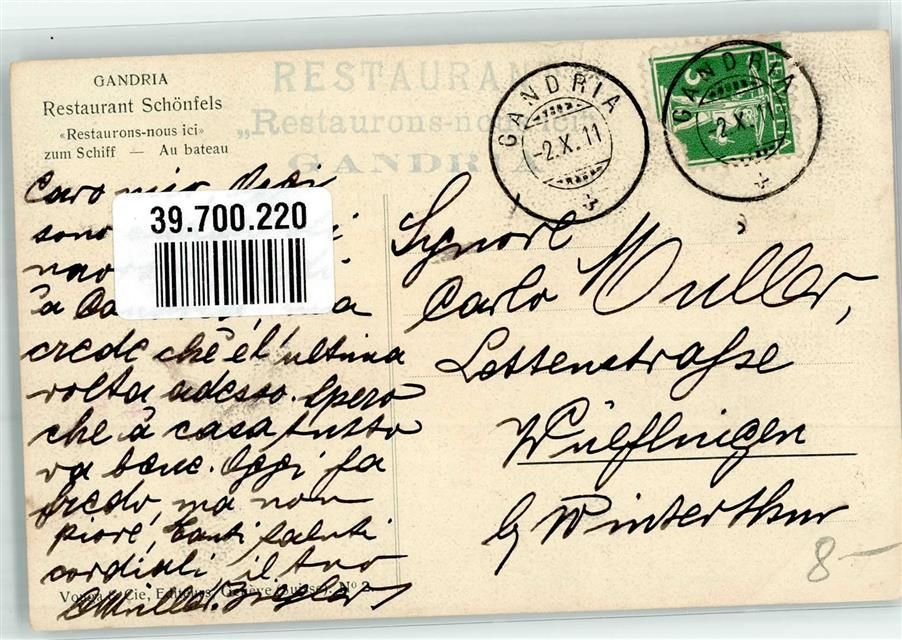 GANDRIA
Restaurant Schönfels
«Restaurons-nous ici»
zum Schiff — Au bateau
RESTAURANT
„Restaurons-nous ici"
GANDRIA
GANDRIA
-2.X.11
GANDRIA
-2.X.11
5
HELVETIA
39.700.220
Caro mio
sono
a
crede che è l'ultima
volta adesso. Spero
che à casa tutto
va bene. Oggi fa
fredo, ma non
piove, Tanti saluti
cordiali il tuo
Müller-Ziegler
Signore
Carlo Müller,
Lettenstraße
Wülflingen
b/ Winterthur
8-
Vouga & Cie, Editeurs, Genève (Suisse). Nº 2